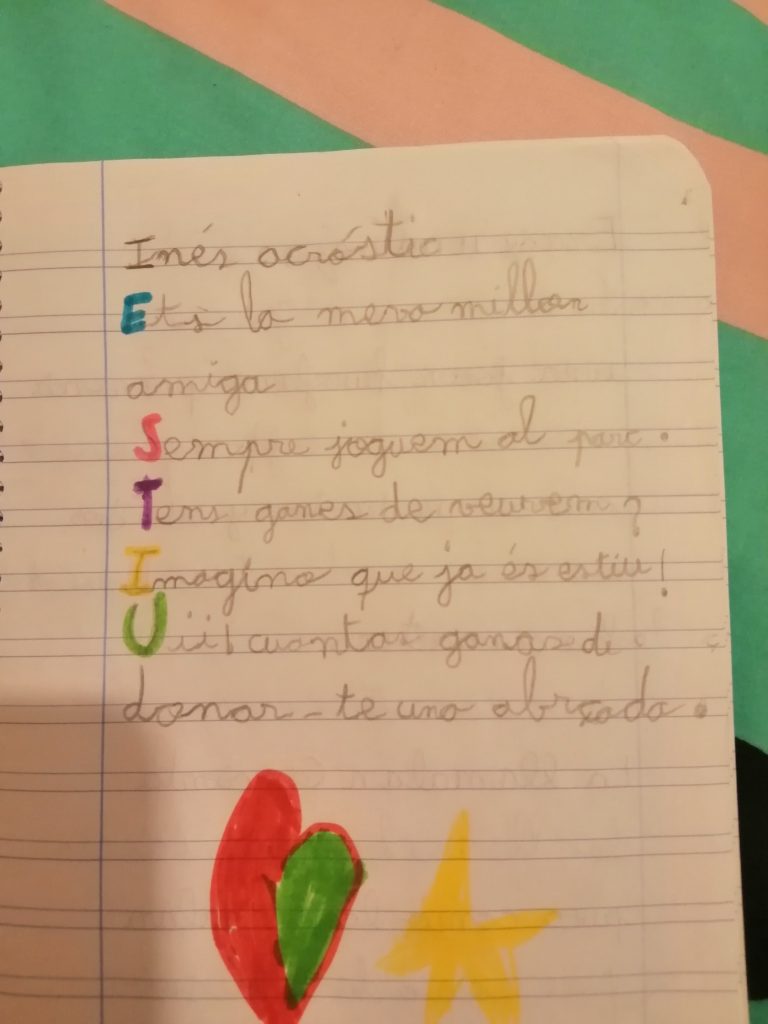 Inés acróstic
Ets la meva millor
amiga
Sempre joguem al parc.
Tens ganes de veurem?
Imagino que ja és estiu!
Uiii cuantas ganas de
donar-te una abrçada.